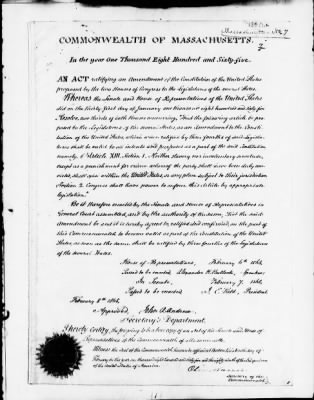 Massachusetts No 7
2
COMMONWEALTH OF MASSACHUSETTS.
In the year One Thousand Eight Hundred and Sixty-five.
AN ACT ratifying an Amendment of the Constitution of the United States
proposed by the two Houses of Congress to the legislatures of the several States.
Whereas the Senate and House of Representatives of the United States
did on the thirty first day of January one thousand eight hundred and sixty five
Resolve, two thirds of both Houses concurring, That the following article be pro-
posed to the Legislatures of the several States, as an amendment to the Consti-
tution of the United States which when ratified by three fourths of said Legisla-
tures shall be valid to all intents and purposes as a part of the said Constitution
namely, "Article XIII, Section 1. Neither slavery nor involuntary servitude,
except as a punishment for crime whereof the party shall have been duly con-
victed, shall exist within the United States, or any place subject to their jurisdiction
Section 2. Congress shall have power to enforce this Article by appropriate
legislation."
Be it therefore enacted by the Senate and House of Representatives in
General Court assembled, and by the authority of the same, That the said
amendment be and it is hereby agreed to, ratified and confirmed, on the part of
this Commonwealth to become valid as part of the Constitution of the United
States, as soon as the same shall be ratified by three fourths of the legislatures
of the several States.
House of Representatives, February 6th 1865,
Passed to be enacted, Alexander H. Bullock, Speaker.
In Senate, February 7, 1865,
Passed to be enacted, J. E. Field, President.
February 8th 1865,
Approved, John A. Andrew.
Secretary's Department.
I hereby Certify, the foregoing to be a true copy of an Act of the Senate and House of
Representatives of the Commonwealth of Massachusetts.
Witness the Seal of the Commonwealth
of the United States of America.
Secretary of the
Commonwealth.